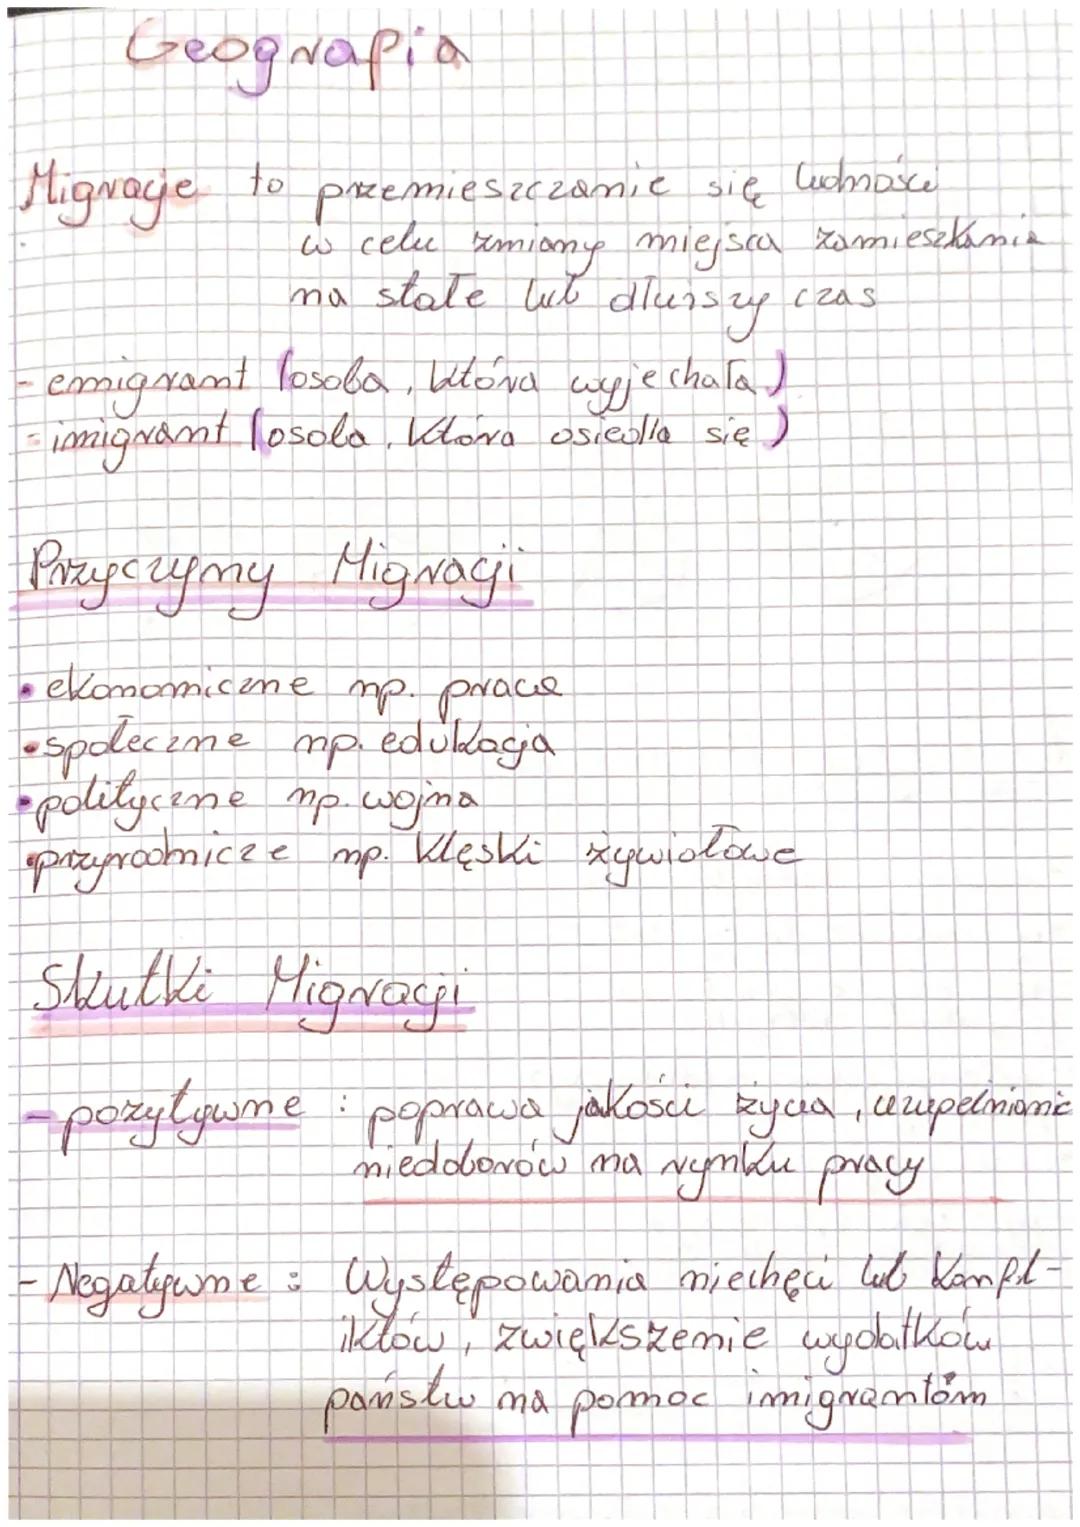 Geografia
Migracje to przemieszczanie się ludności
w celu zmiany miejsca zamieszkania
na stałe lub dłuższy czas
- emigrant (osoba, która wyjechała)
- imigrant (osoba, która osiedla się)
Przyczyny Migracji
• ekonomiczne np. praca
• społeczne np. edukacja
• polityczne np. wojna
• przyrodnicze np. klęski żywiołowe
Skutki Migracji
- pozytywne : poprawa jakości życia, uzupełnianie
niedoborów na rynku pracy
- Negatywne : Występowania niechęci lub konfl-
iktów, zwiększenie wydatków
państw na pomoc imigrantom